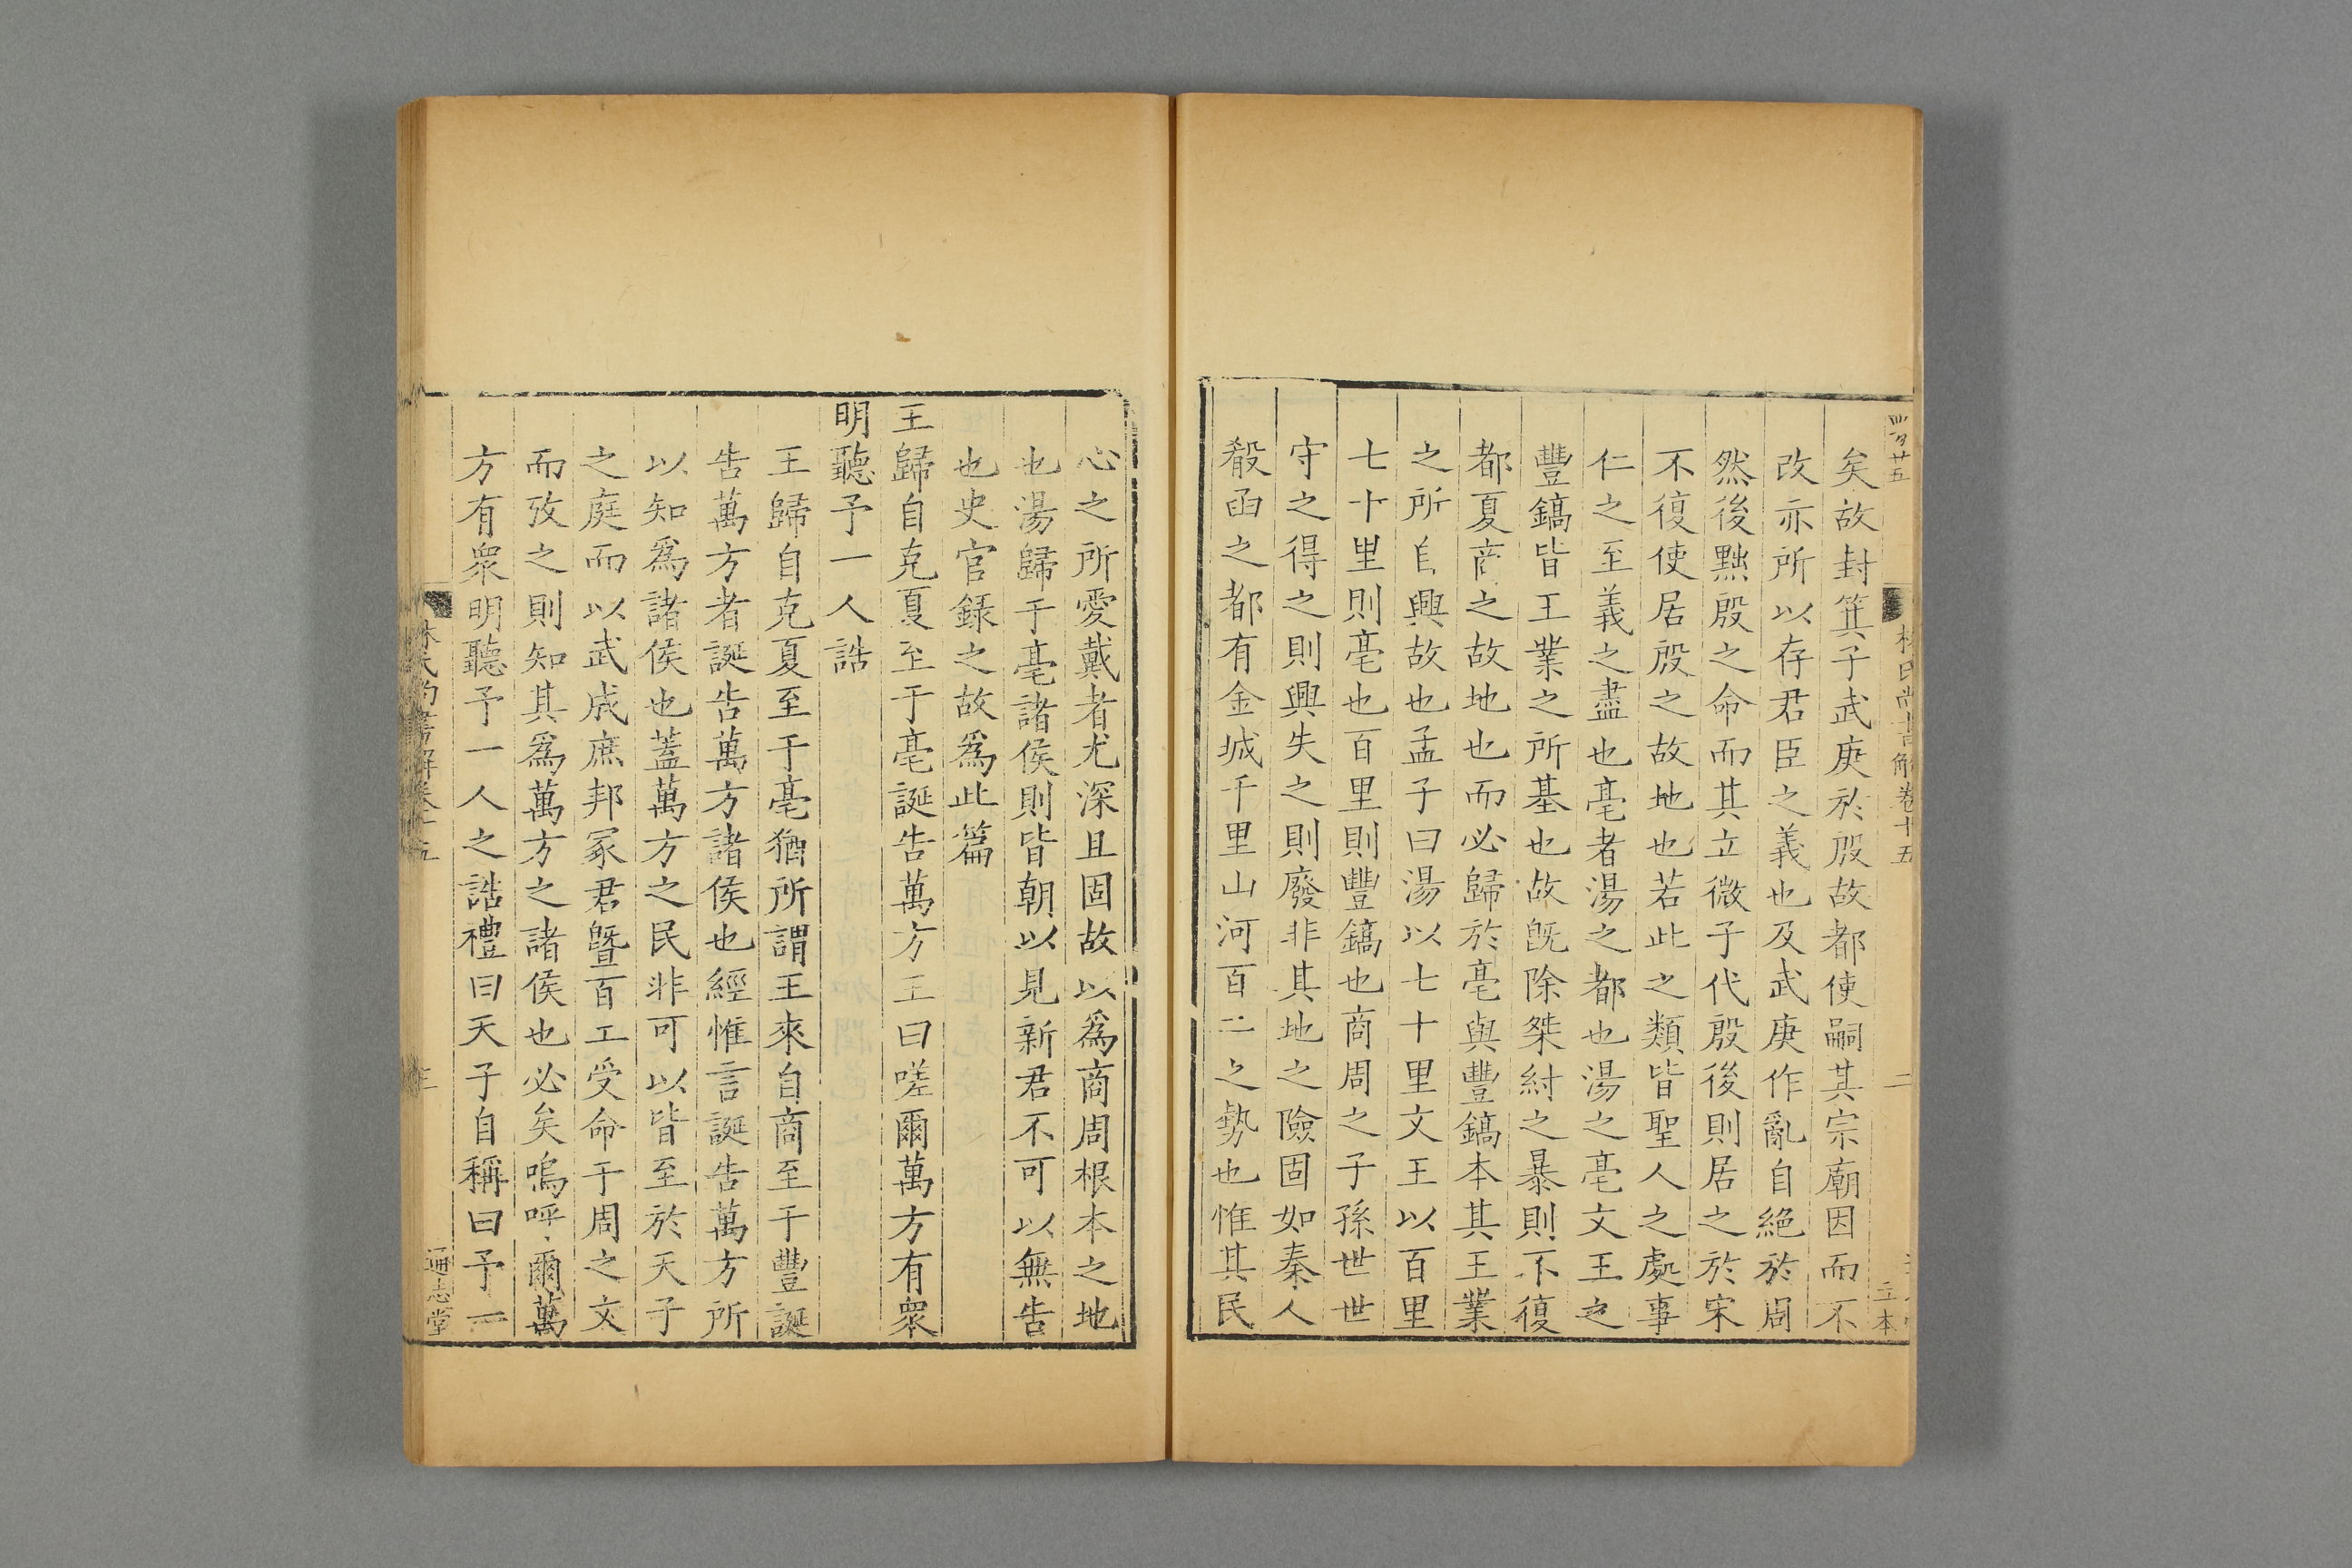 矣故封箕子武庚於殷故都使嗣其宗廟因而不
改亦所以存君臣之義也及武庚作亂自絶於周
然後黜殷之命而其立微子代殷後則居之於宋
不復使居殷之故地也若此之類皆聖人之處事
仁之至義之盡也亳者湯之都也湯之亳文王之
豐鎬皆王業之所基也故旣除桀紂之暴則不復
都夏商之故地也而必歸於亳與豐鎬本其王業
之所自興故也孟子曰湯以七十里文王以百里
七十里則亳也百里則豐鎬也商周之子孫世世
守之得之則興失之則廢非其地之險固如秦人
殽函之都有金城千里山河百二之勢也惟其民
心之所愛戴者尤深且固故以爲商周根本之地
也湯歸于亳諸侯則皆朝以見新君不可以無告
也史官錄之故爲此篇
王歸自克夏至于亳誕告萬方王曰嗟爾萬方有衆
明聽予一人誥
王歸自克夏至于亳猶所謂王來自商至于豐誕
告萬方者誕告萬方諸侯也經惟言誕告萬方所
以知爲諸侯也蓋萬方之民非可以皆至於天子
之庭而以武成庶邦冢君曁百工受命于周之文
而攷之則知其爲萬方之諸侯也必矣嗚呼爾萬
方有衆明聽予一人之誥禮曰天子自稱曰予一
林氏尚書解卷十五
二
林氏尚書解卷十五
三
通志堂